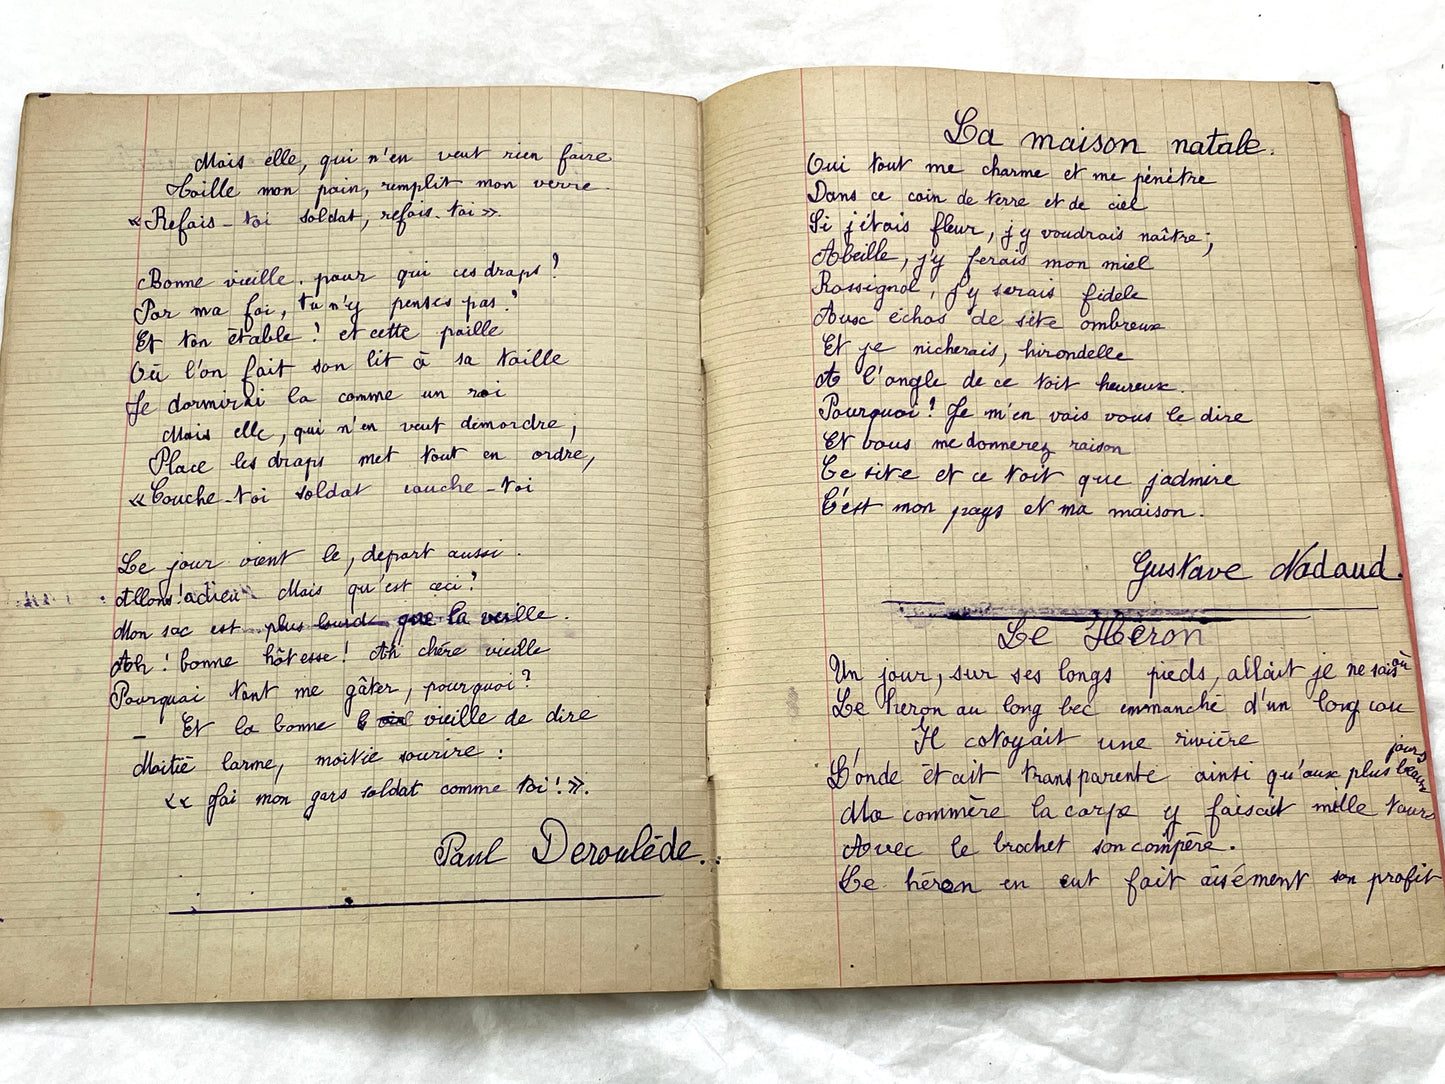 Mais elle, qui n'en veut rien faire
Taille mon pain, remplit mon verre.
« Refais-toi soldat, refais-toi ».
Bonne vieille. pour qui ces draps?
Par ma foi, tu n'y penses pas?
Et ton étable! et cette paille
Où l'on fait son lit à sa taille
Je dormirai la comme un roi
Mais elle, qui n'en veut démordre,
Place les draps met tout en ordre,
« Couche-toi soldat couche-toi
Le jour vient le, depart aussi.
Allons! adieu Mais qu'est ceci?
Mon sac est plus lourd que la veille.
Ah! bonne hôtesse! Ah chère vieille
Pourquoi tant me gâter, pourquoi?
_ Et la bonne vieille de dire
Moitié larme, moitie sourire:
« J'ai mon gars soldat comme toi! ».
Paul Deroulède.
La maison natale.
Oui tout me charme et me pénètre
Dans ce coin de terre et de ciel
Si j'étais fleur, j'y voudrais naître;
Abeille, j'y ferais mon miel
Rossignol, j'y serais fidèle
Aux échos de site ombreux
Et je nicherais, hirondelle
A l'angle de ce toit heureux.
Pourquoi! Je m'en vais vous le dire
Et vous me donnerez raison
Ce site et ce toit que j'admire
C'est mon pays et ma maison.
Gustave Nadaud.
Le Héron
Un jour, sur ses longs pieds, allait je ne sais où
Le heron au long bec emmanché d'un long cou
Il cotoyait une rivière
L'onde était transparente ainsi qu'aux plus beaux jours
Ma commère la carpe y faisait mille tours
Avec le brochet son compère.
Le héron en eut fait aisément son profit